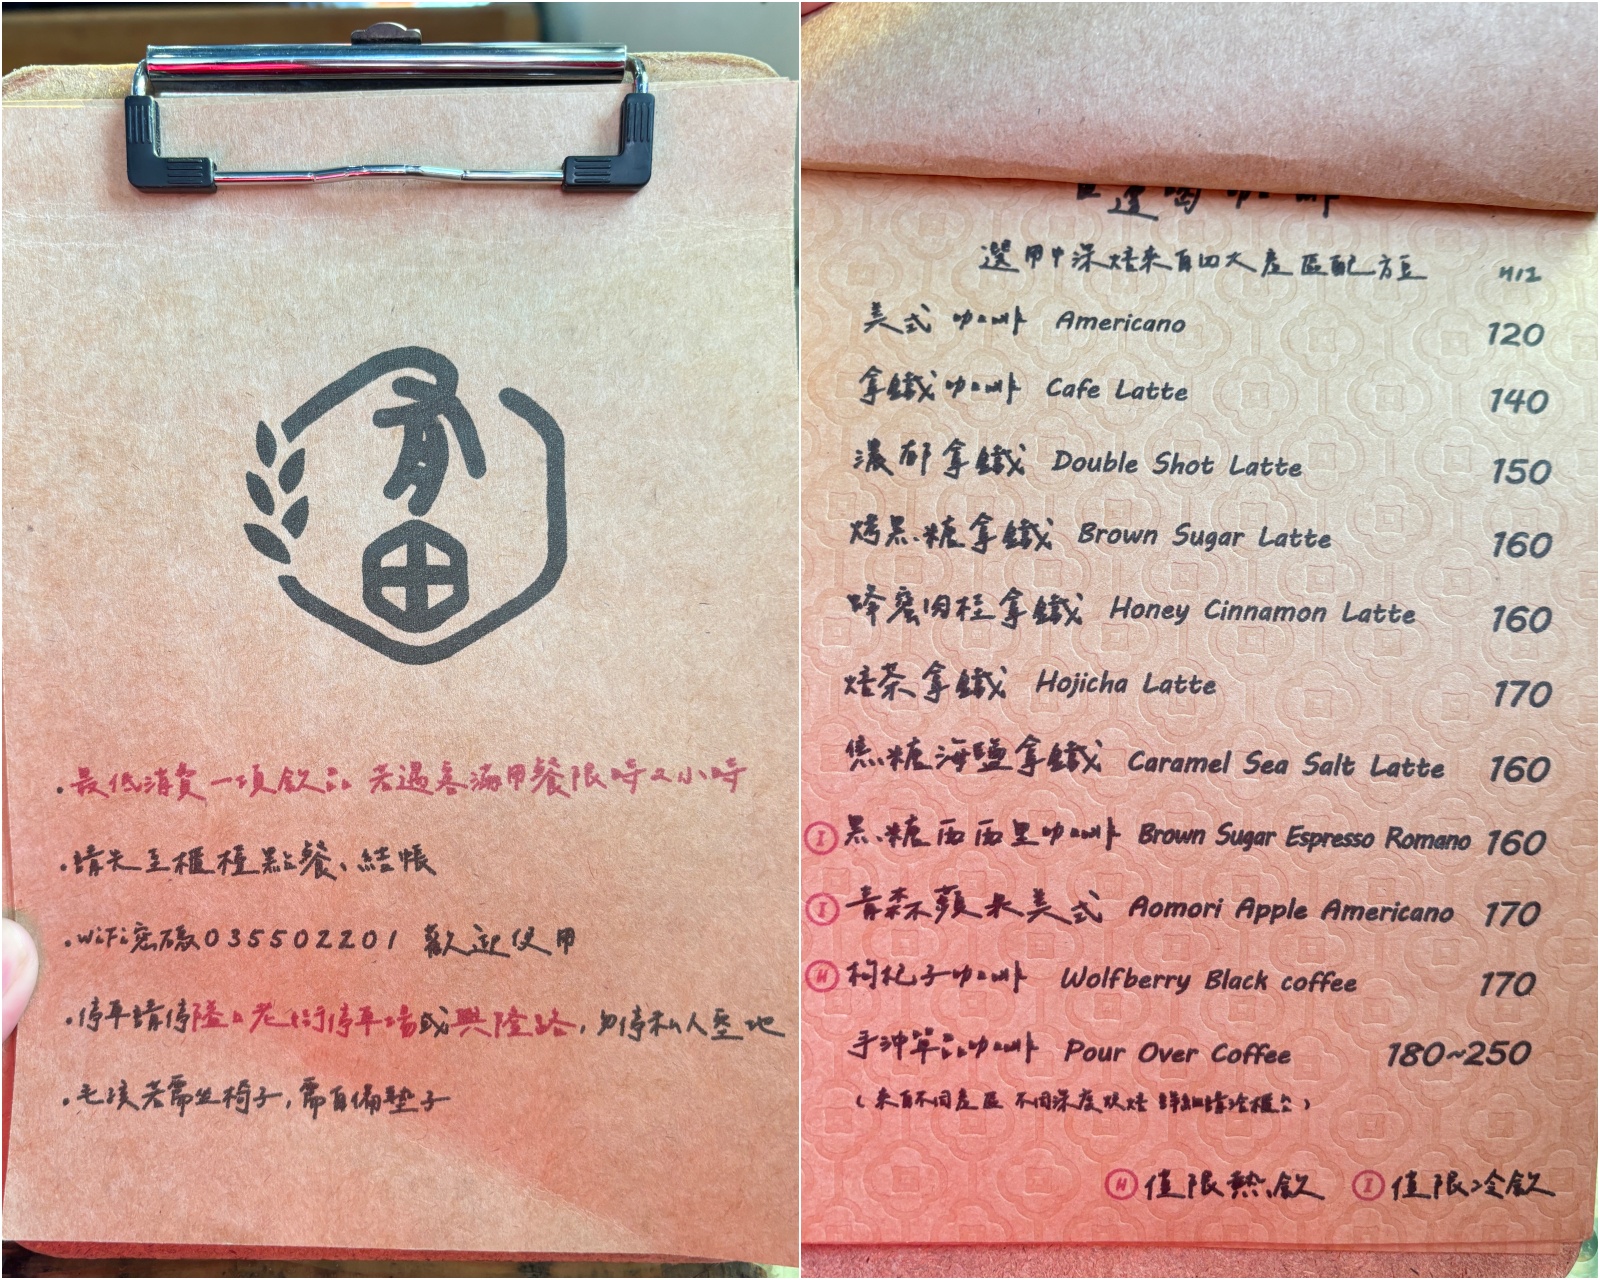 田
·最低消費一項飲品 若遇客滿用餐限時2小時
·請先至櫃檯點餐、結帳
·WiFi密碼035502201 歡迎使用
·停車請停隘口老街停車場或興隆路,勿停私人空地
·毛孩若需坐椅子,需自備墊子
選用中深焙來自四大產區配方豆 H/I
美式咖啡 Americano 120
拿鐵咖啡 Cafe Latte 140
濃郁拿鐵 Double Shot Latte 150
烤黑糖拿鐵 Brown Sugar Latte 160
蜂蜜肉桂拿鐵 Honey Cinnamon Latte 160
焙茶拿鐵 Hojicha Latte 170
焦糖海鹽拿鐵 Caramel Sea Salt Latte 160
Ⓘ 黑糖西西里咖啡 Brown Sugar Espresso Romano 160
Ⓘ 青森蘋果美式 Aomori Apple Americano 170
Ⓗ 枸杞子咖啡 Wolfberry Black coffee 170
手沖單品咖啡 Pour Over Coffee 180~250
(來自不同產區 不同深度烘焙 詳細請洽櫃台)
Ⓗ 值限熱飲 Ⓘ 值限冷飲